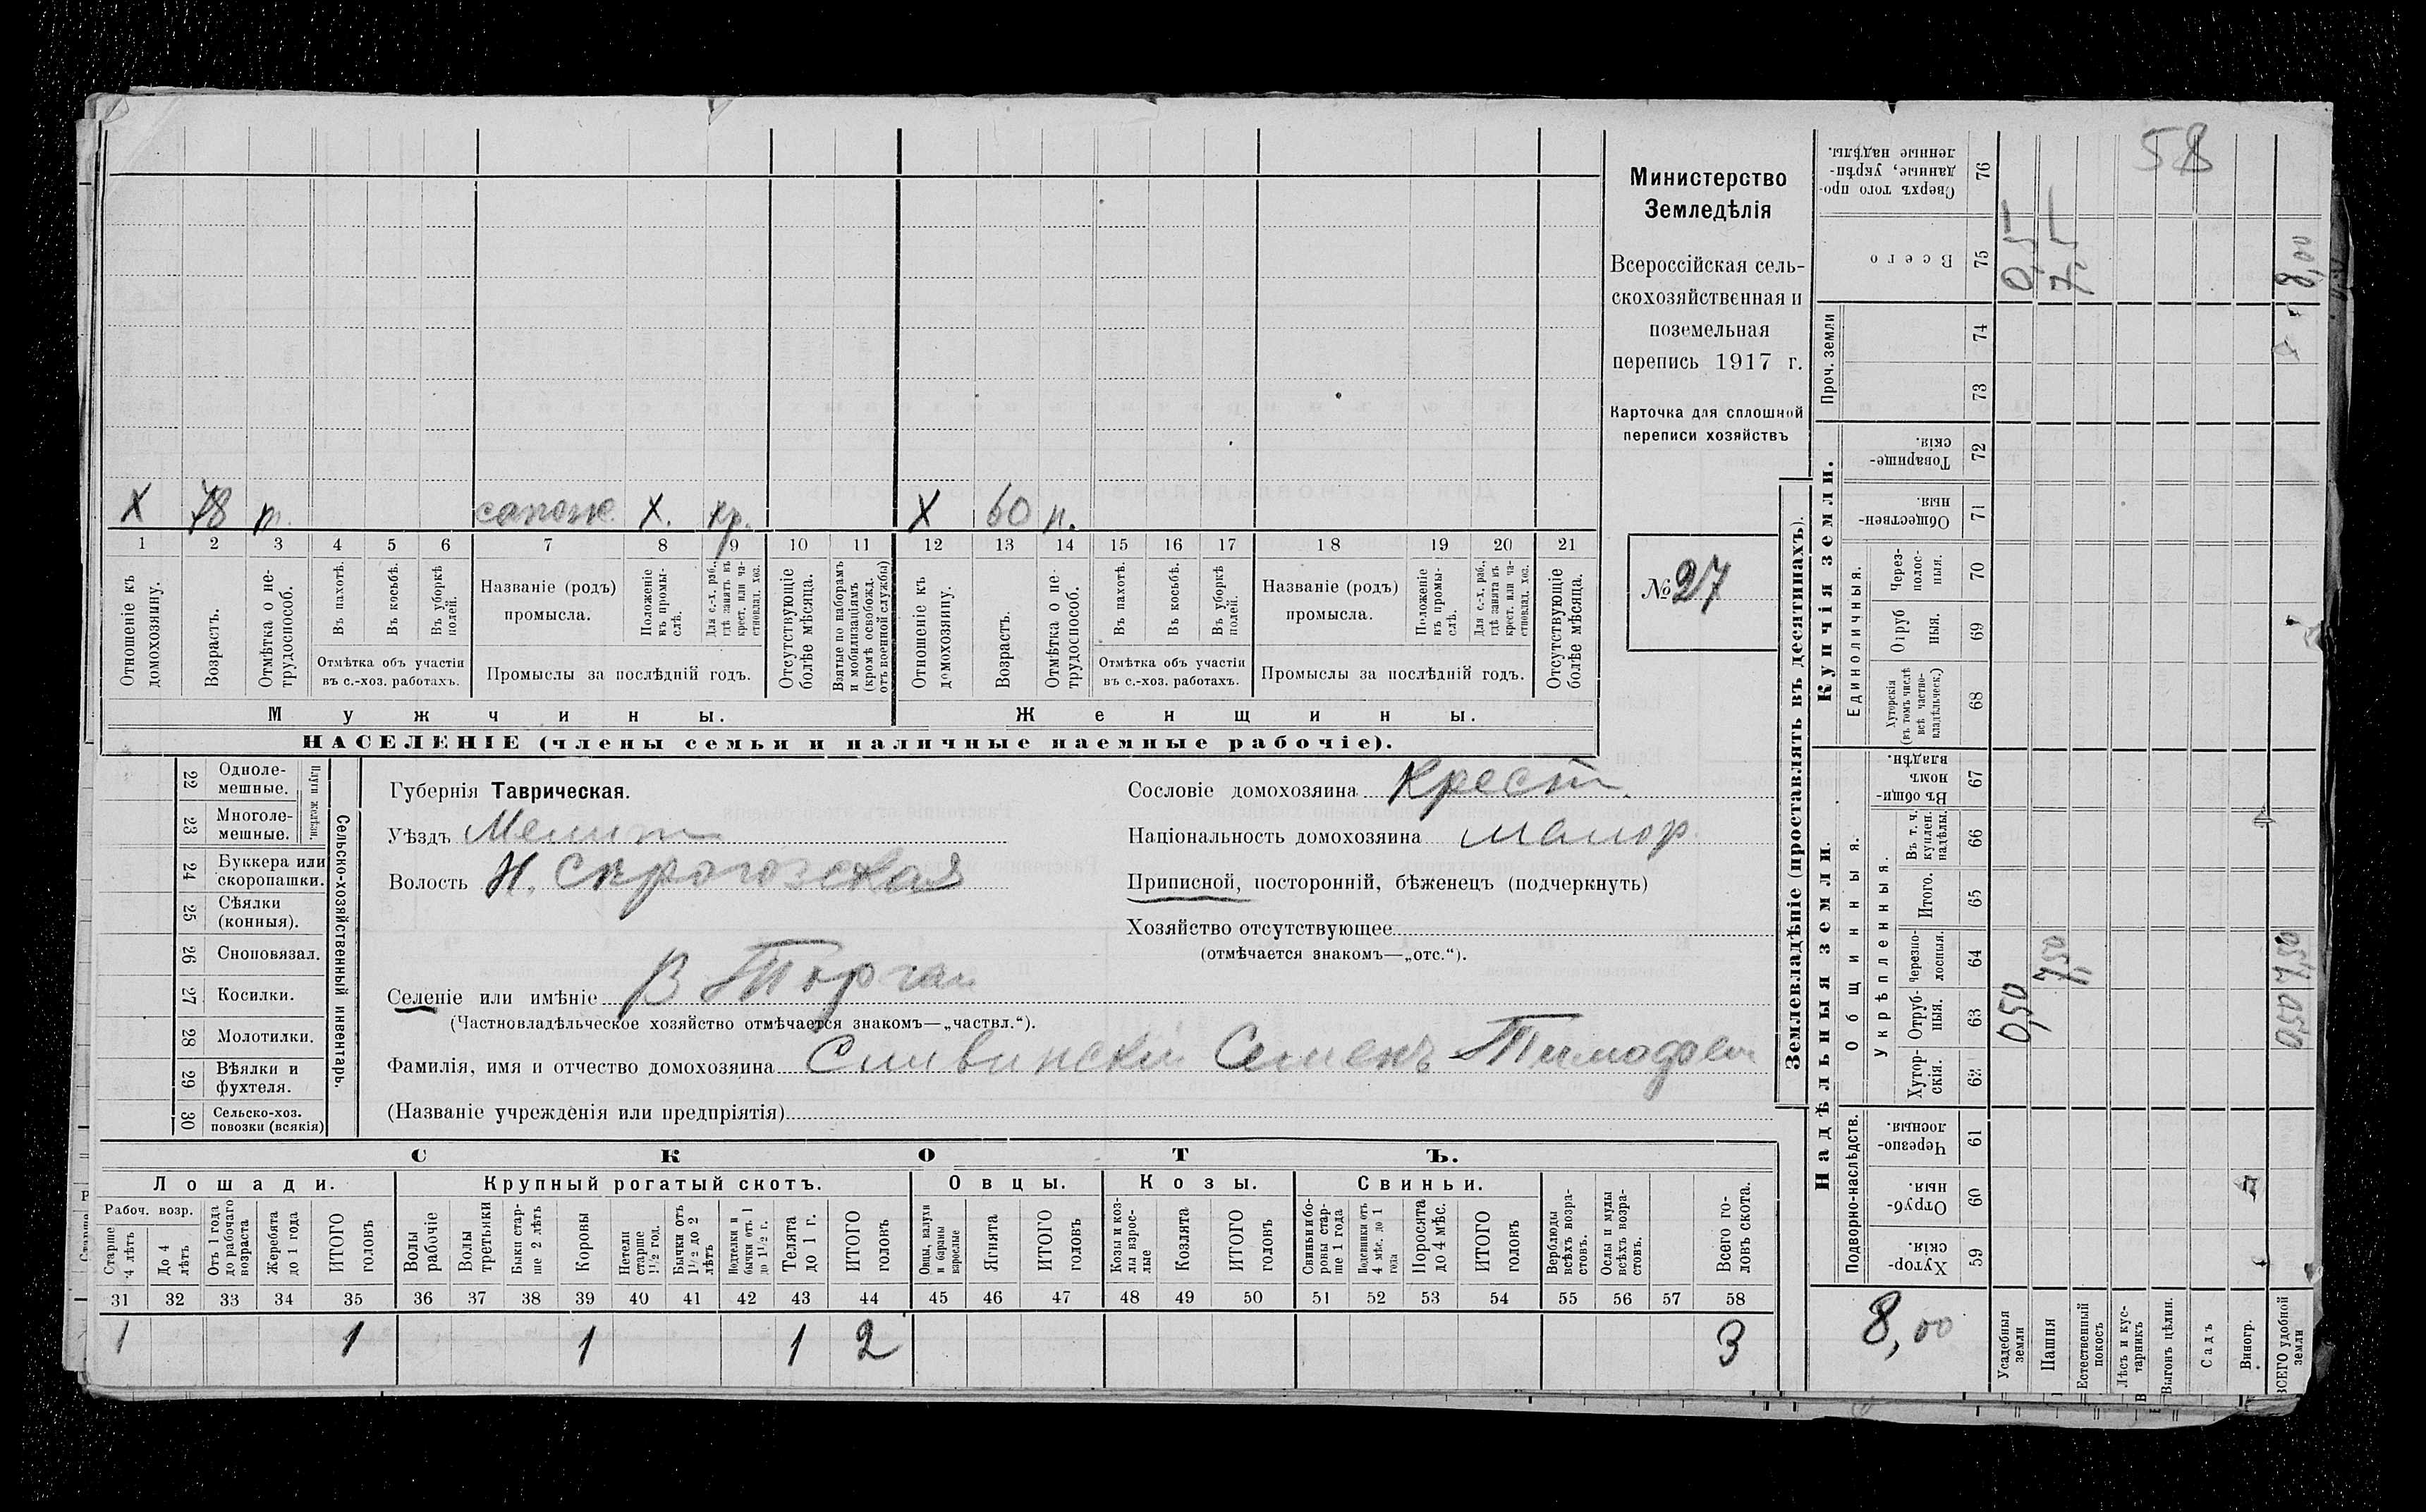 58
Министерство
Земледѣлія
Всероссійская сель-
скохозяйственная и
поземельная
перепись 1917 г.
Карточка для сплошной
переписи хозяйствъ
№ 27
X 78 н. сапож. X. кр. X 60 н.
1 2 3 4 5 6 7 8 9 10 11 12 13 14 15 16 17 18 19 20 21
Отношеніе къ домохозяину.
Возрастъ.
Отмѣтка о не-трудоспособ.
Въ пахотѣ.
Въ косьбѣ.
Въ уборкѣ полей.
Отмѣтка объ участіи
въ с.-хоз. работахъ.
Названіе (родъ)
промысла.
Положеніе въ промы-слѣ.
Для с.-х. раб., гдѣ занятъ въ крест. или ча-стновлад. хоз.
Промыслы за послѣдній годъ.
Отсутствующіе болѣе мѣсяца.
Взятые по наборамъ и мобилизаціямъ (кромѣ освобожд. отъ военной службы)
Отношеніе къ домохозяину.
Возрастъ.
Отмѣтка о не-трудоспособ.
Въ пахотѣ.
Въ косьбѣ.
Въ уборкѣ полей.
Отмѣтка объ участіи
въ с.-хоз. работахъ.
Названіе (родъ)
промысла.
Положеніе въ промы-слѣ.
Для с.-х. раб., гдѣ занята въ крест. или ча-стновлад. хоз.
Промыслы за послѣдній годъ.
Отсутствующіе болѣе мѣсяца.
Мужчины.
Женщины.
НАСЕЛЕНІЕ (члены семьи и наличные наемные рабочіе).
Сельско-хозяйственный инвентарь.
Плуги желѣзн.
22 Одноле-мешные.
23 Многоле-мешные.
24 Буккера или скоропашки.
25 Сѣялки (конныя).
26 Сноповязал.
27 Косилки.
28 Молотилки.
29 Вѣялки и фухтеля.
30 Сельско-хоз. повозки (всякія)
Губернія Таврическая.
Уѣздъ Мелит
Волость Н. Сѣрогозская
Селеніе или имѣніе В Торгаи
(Частновладѣльческое хозяйство отмѣчается знакомъ—„частвл.“).
Фамилія, имя и отчество домохозяина Сливинскій Семенъ Тимофеи
(Названіе учрежденія или предпріятія)
Сословіе домохозяина Крест.
Національность домохозяина малор.
Приписной, посторонній, бѣженецъ (подчеркнуть)
Хозяйство отсутствующее
(отмѣчается знакомъ—„отс.“).
СКОТЪ.
Лошади.
Крупный рогатый скотъ.
Овцы.
Козы.
Свиньи.
Рабоч. возр.
Старше 4 лѣтъ
До 4 лѣтъ
Отъ 1 года до рабочаго возраста
Жеребята до 1 года
ИТОГО головъ
Волы рабочіе
Волы третьяки
Быки стар-ше 2 лѣтъ
Коровы
Нетели старше 1½ год.
Бычки отъ 1½ до 2 лѣтъ
Подтелки и бычки отъ 1 до 1½ г.
Телята до 1 г.
ИТОГО головъ
Овцы, валухи и бараны взрослые
Ягнята
ИТОГО головъ
Козы и коз-лы взрос-лые
Козлята
ИТОГО головъ
Свиньи и бо-ровы стар-ше 1 года
Подсвинки отъ 4 мѣс. до 1 года
Поросята до 4 мѣс.
ИТОГО головъ
Верблюды всѣхъ возра-стовъ.
Ослы и мулы всѣхъ возра-стовъ.
Всего го-ловъ скота.
31 32 33 34 35 36 37 38 39 40 41 42 43 44 45 46 47 48 49 50 51 52 53 54 55 56 57 58
1 1 1 1 2 3
Землевладѣніе (проставлять въ десятинахъ).
Надѣльныя земли.
Подворно-наслѣдств.
Хутор-скія. 59
Отруб-ныя. 60
Черезпо-лосныя. 61
Общинныя.
Укрѣпленныя.
Хутор-скія. 62
Отруб-ныя. 63
Черезпо-лосныя. 64
Итого. 65
Въ т. ч. куплен. надѣлы. 66
Въ общи-номъ владѣн. 67
Купчія земли.
Единоличныя.
Хуторскія (въ томъ числѣ всѣ частно-владѣльческ.) 68
Отруб ныя. 69
Через-полос-ныя. 70
Обществен-ныя. 71
Товарище-скія. 72
Проч. земли
73
74
Всего 75
Сверхъ того про-данные, укрѣп-ленные надѣлы. 76
8,00
Усадебныя земли 0,50 0,5
Пашня 7,50 7,5
Естественный покосъ
Лѣсъ и кус-тарникъ
Выгонъ цѣлин.
Садъ
Виногр.
ВСЕГО удобной земли 0,50 7,50 8,00